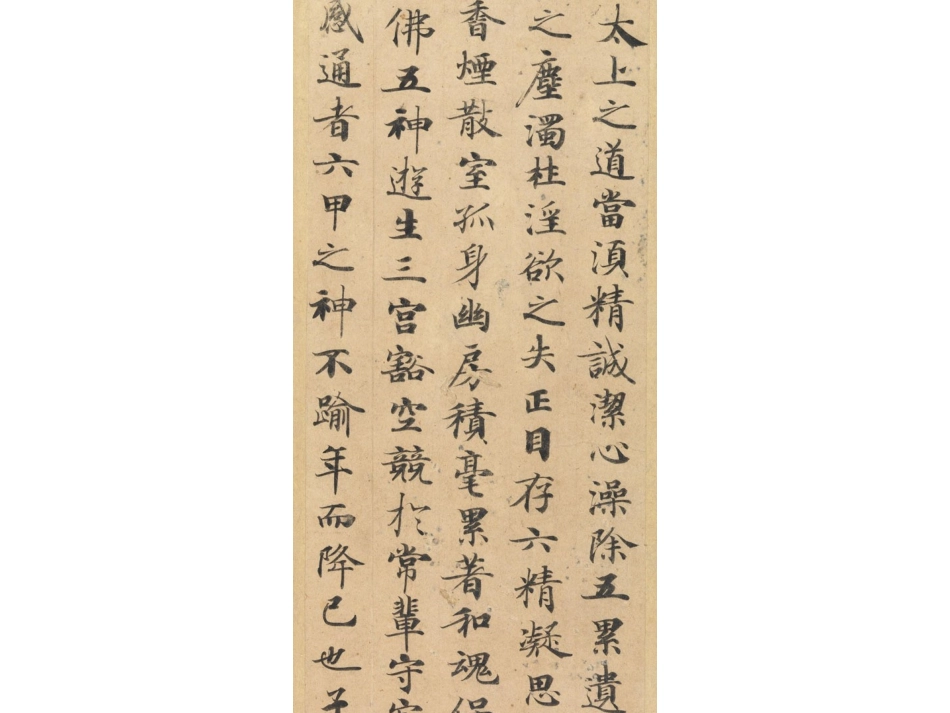 太上之道當湏精誠潔心澡除五累遺
之塵濁杜淫欲之失正目存六精凝思
香煙散室孤身幽房積毫累著和魂保
佛五神遊生三宮豁空競於常輩守寂
感通者六甲之神不踰年而降己也子